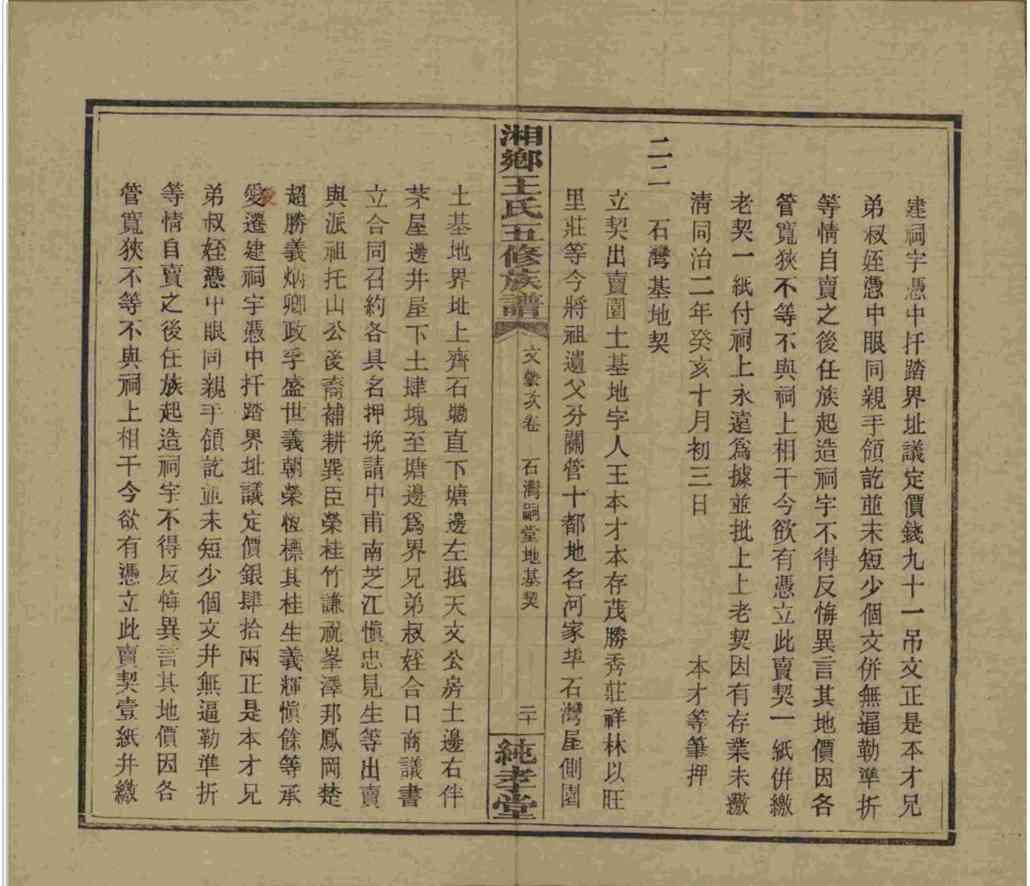 建祠宇憑中扦踏界址議定價錢九十一吊文正是本才兄
弟叔姪憑中眼同親手領訖並未短少個文併無逼勒準折
等情自賣之後任族起造祠宇不得反悔異言其地價因各
管寬狹不等不與祠上相干今欲有憑立此賣契一紙併繳
老契一紙付祠上永遠爲據並批上上老契因有存業未繳
清同治二年癸亥十月初三日 本才等筆押
二二 石灣基地契
立契出賣園土基地字人王本才本存茂勝秀莊祥林以旺
里莊等今將祖遺父分關管十都地名河家坲石灣屋側園
湘鄉王氏五修族譜 文彙亥卷 石灣嗣堂地基契 二十 純孝堂
土基地界址上齊石墈直下塘邊左抵天文公房土邊右伴
茅屋邊井屋下土肆塊至塘邊爲界兄弟叔姪合口商議書
立合同召約各具名押挽請中甫南芝江愼忠見生等出賣
與派祖托山公後裔補耕巽臣榮桂竹謙祝峯澤邦鳳岡楚
超勝義炳卿政孚盛世義朝榮恆標其桂生義輝愼餘等承
愛遷建祠宇憑中扦踏界址議定價銀肆拾兩正是本才兄
弟叔姪憑中眼同親手領訖並未短少個文并無逼勒準折
等情自賣之後任族起造祠宇不得反悔異言其地價因各
管寬狹不等不與祠上相干今欲有憑立此賣契壹紙并繳